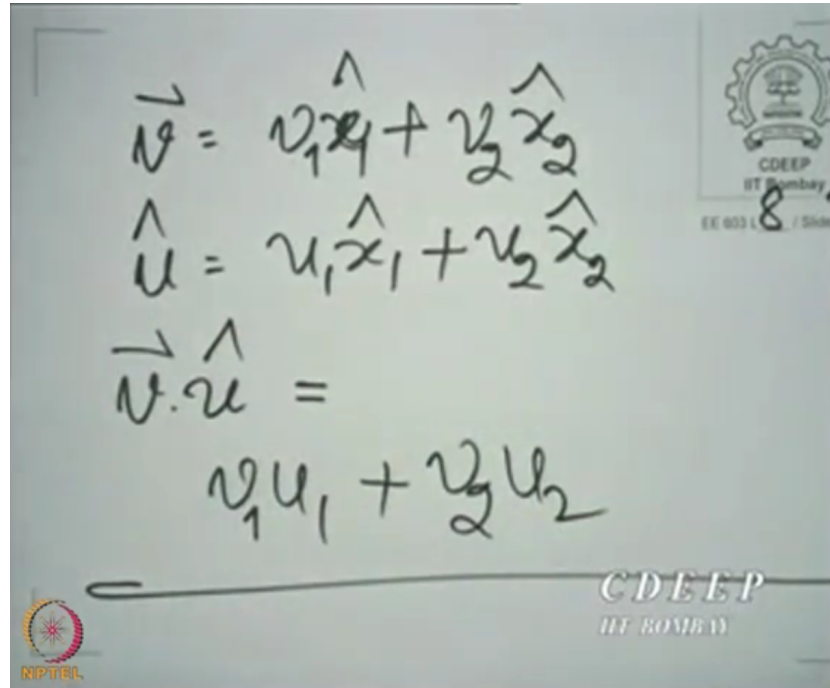 v⃗ = v₁x̂₁ + v₂x̂₂
û = u₁x̂₁ + u₂x̂₂
v⃗.û =
v₁u₁ + v₂u₂
CDEEP
IIT Bombay
EE 603 L 8 / Slide
CDEEP
IIT BOMBAY
NPTEL